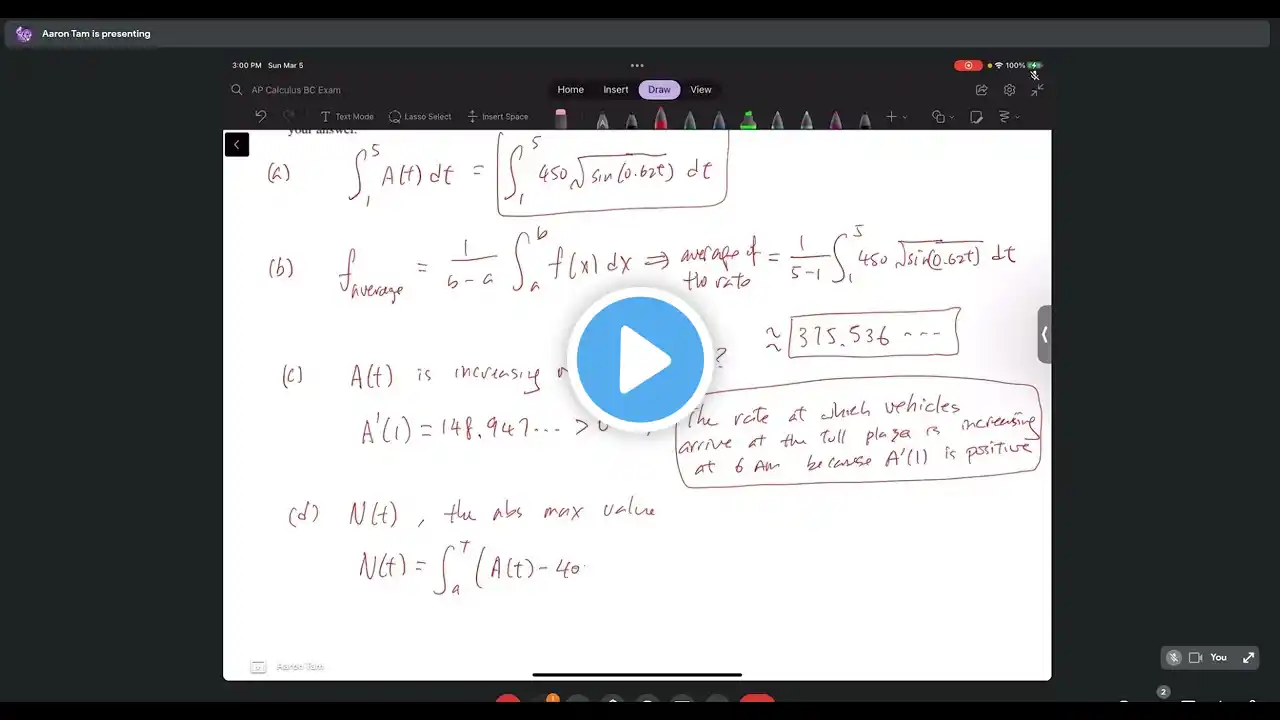 Aaron Tam is presenting
3:00 PM Sun Mar 5
100%
AP Calculus BC Exam
Home Insert Draw View
Text Mode Lasso Select Insert Space
your answer.
(a) ∫₁⁵ A(t) dt = ∫₁⁵ 450√sin(0.62t) dt
(b) f average = 1/(b-a) ∫ₐᵇ f(x) dx ⇒ average of the rate = 1/(5-1) ∫₁⁵ 450√sin(0.62t) dt
≈ 375.536 ...
(c) A(t) is increasing ?
A'(1) = 148.947... > 0
The rate at which vehicles
arrive at the toll plaza is increasing
at 6 AM because A'(1) is positive
(d) N(t), the abs max value
N(t) = ∫ₐᵗ (A(t) - 40
Aaron Tam
You
2